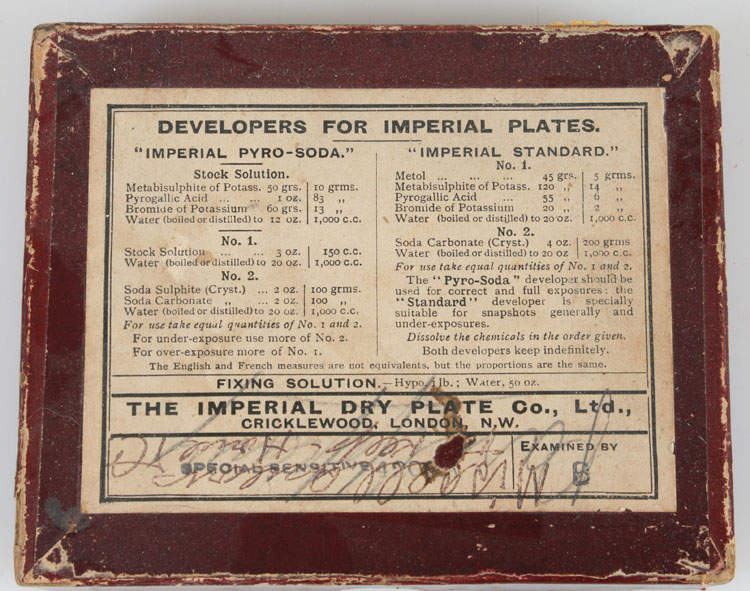 DEVELOPERS FOR IMPERIAL PLATES.
"IMPERIAL PYRO-SODA."
Stock Solution.
Metabisulphite of Potass. 50 grs. 10 grms.
Pyrogallic Acid ... ... 1 oz. 83 „
Bromide of Potassium 60 grs. 13 „
Water (boiled or distilled) to 12 oz. 1,000 c.c.
No. 1.
Stock Solution ... ... 3 oz. 150 c.c.
Water (boiled or distilled) to 20 oz. 1,000 c.c.
No. 2.
Soda Sulphite (Cryst.) ... 2 oz. 100 grms.
Soda Carbonate „ ... 2 oz. 100 „
Water (boiled or distilled) to 20 oz. 1,000 c.c.
For use take equal quantities of No. 1 and 2.
For under-exposure use more of No. 2.
For over-exposure more of No. 1.
"IMPERIAL STANDARD."
No. 1.
Metol ... ... ... 45 grs. 5 grms.
Metabisulphite of Potass. 120 „ 14 „
Pyrogallic Acid ... 55 „ 6 „
Bromide of Potassium 20 „ 2 „
Water (boiled or distilled) to 20 oz. 1,000 c.c.
No. 2.
Soda Carbonate (Cryst.) 4 oz. 200 grms
Water (boiled or distilled) to 20 oz 1,000 c.c.
For use take equal quantities of No. 1 and 2.
The "Pyro-Soda" developer should be
used for correct and full exposures: the
"Standard" developer is specially
suitable for snapshots generally and
under-exposures.
Dissolve the chemicals in the order given.
Both developers keep indefinitely.
The English and French measures are not equivalents, but the proportions are the same.
FIXING SOLUTION.—Hypo, 1 lb.; Water, 50 oz.
THE IMPERIAL DRY PLATE Co., Ltd.,
CRICKLEWOOD, LONDON, N.W.
SPECIAL SENSITIVE
EXAMINED BY
B